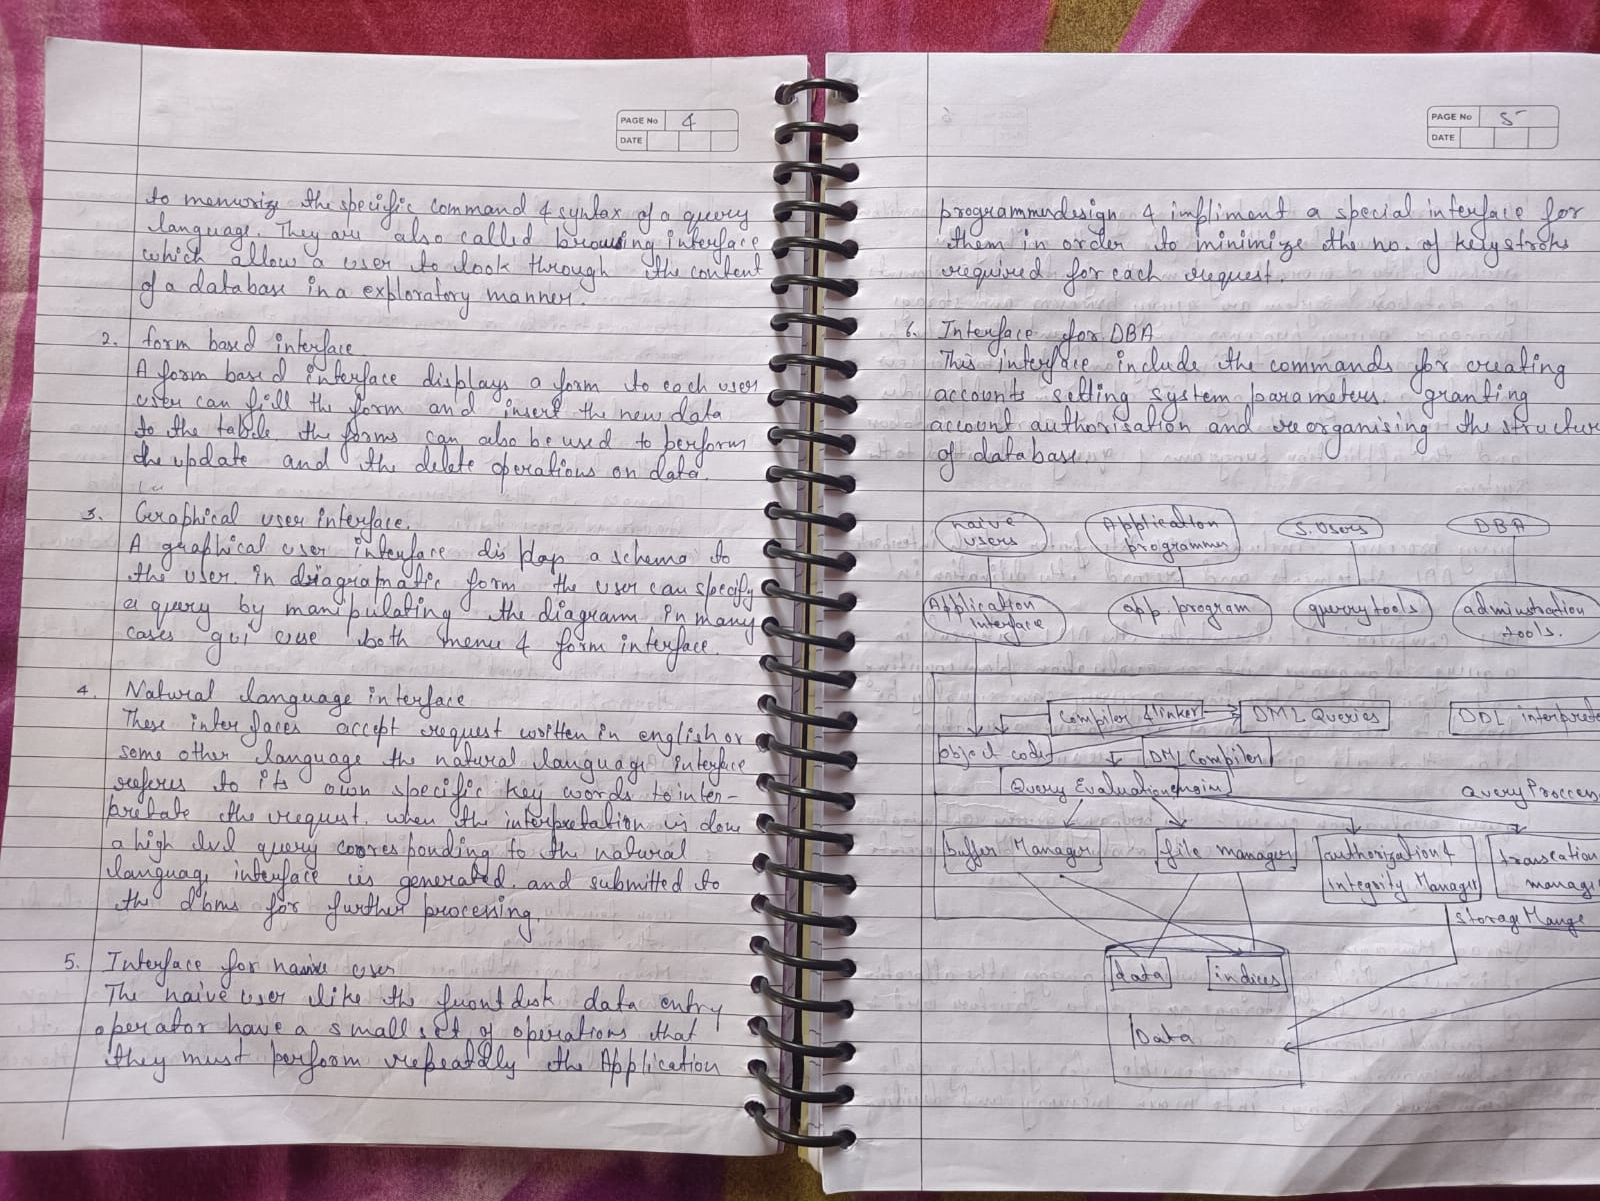 PAGE No 4
DATE
to memorize the specific command & syntax of a query
language. They are also called browsing interface
which allow a user to look through the content
of a database in a exploratory manner.
2. form based interface
A form based interface displays a form to each user
user can fill the form and insert the new data
to the table the forms can also be used to perform
the update and the delete operations on data.
3. Graphical user interface.
A graphical user interface displap a schema to
the user. in driagramatic form the user can specify
a query by manipulating the diagram in many
cases gui use both menu & form interface.
4. Natural language interface
These interfaces accept request written in english or
some other language the natural language interface
referes to its own specific key words to inter-
pretate the request. when the interpretation is done
a high lvl query corresponding to the natural
language interface is generated. and submitted to
the dbms for further processing.
5. Interface for naive user
The naive user like the front disk data entry
operator have a small set of operations that
they must perfoom repeatdly the Application
PAGE No 5
DATE
programmer design & impliment a special interface for
them in order to minimize the no. of keystroks
required for each request.
6. Interface for DBA
This interface include the commands for creating
accounts setting system parameters. granting
account authorisation and reorganising the structur
of database.
naive users
Application programmer
S. Users
DBA
Application interface
app. program
querry tools
adminstration tools.
Compiler & linker
DML Queries
DDL interprete
object code
DML Compiler
Query Evaluation engin
Query Proccess
buffer Manager
file manager
authorization & integrity Manager
transcation manag
Storage Mange
data
indices
Data